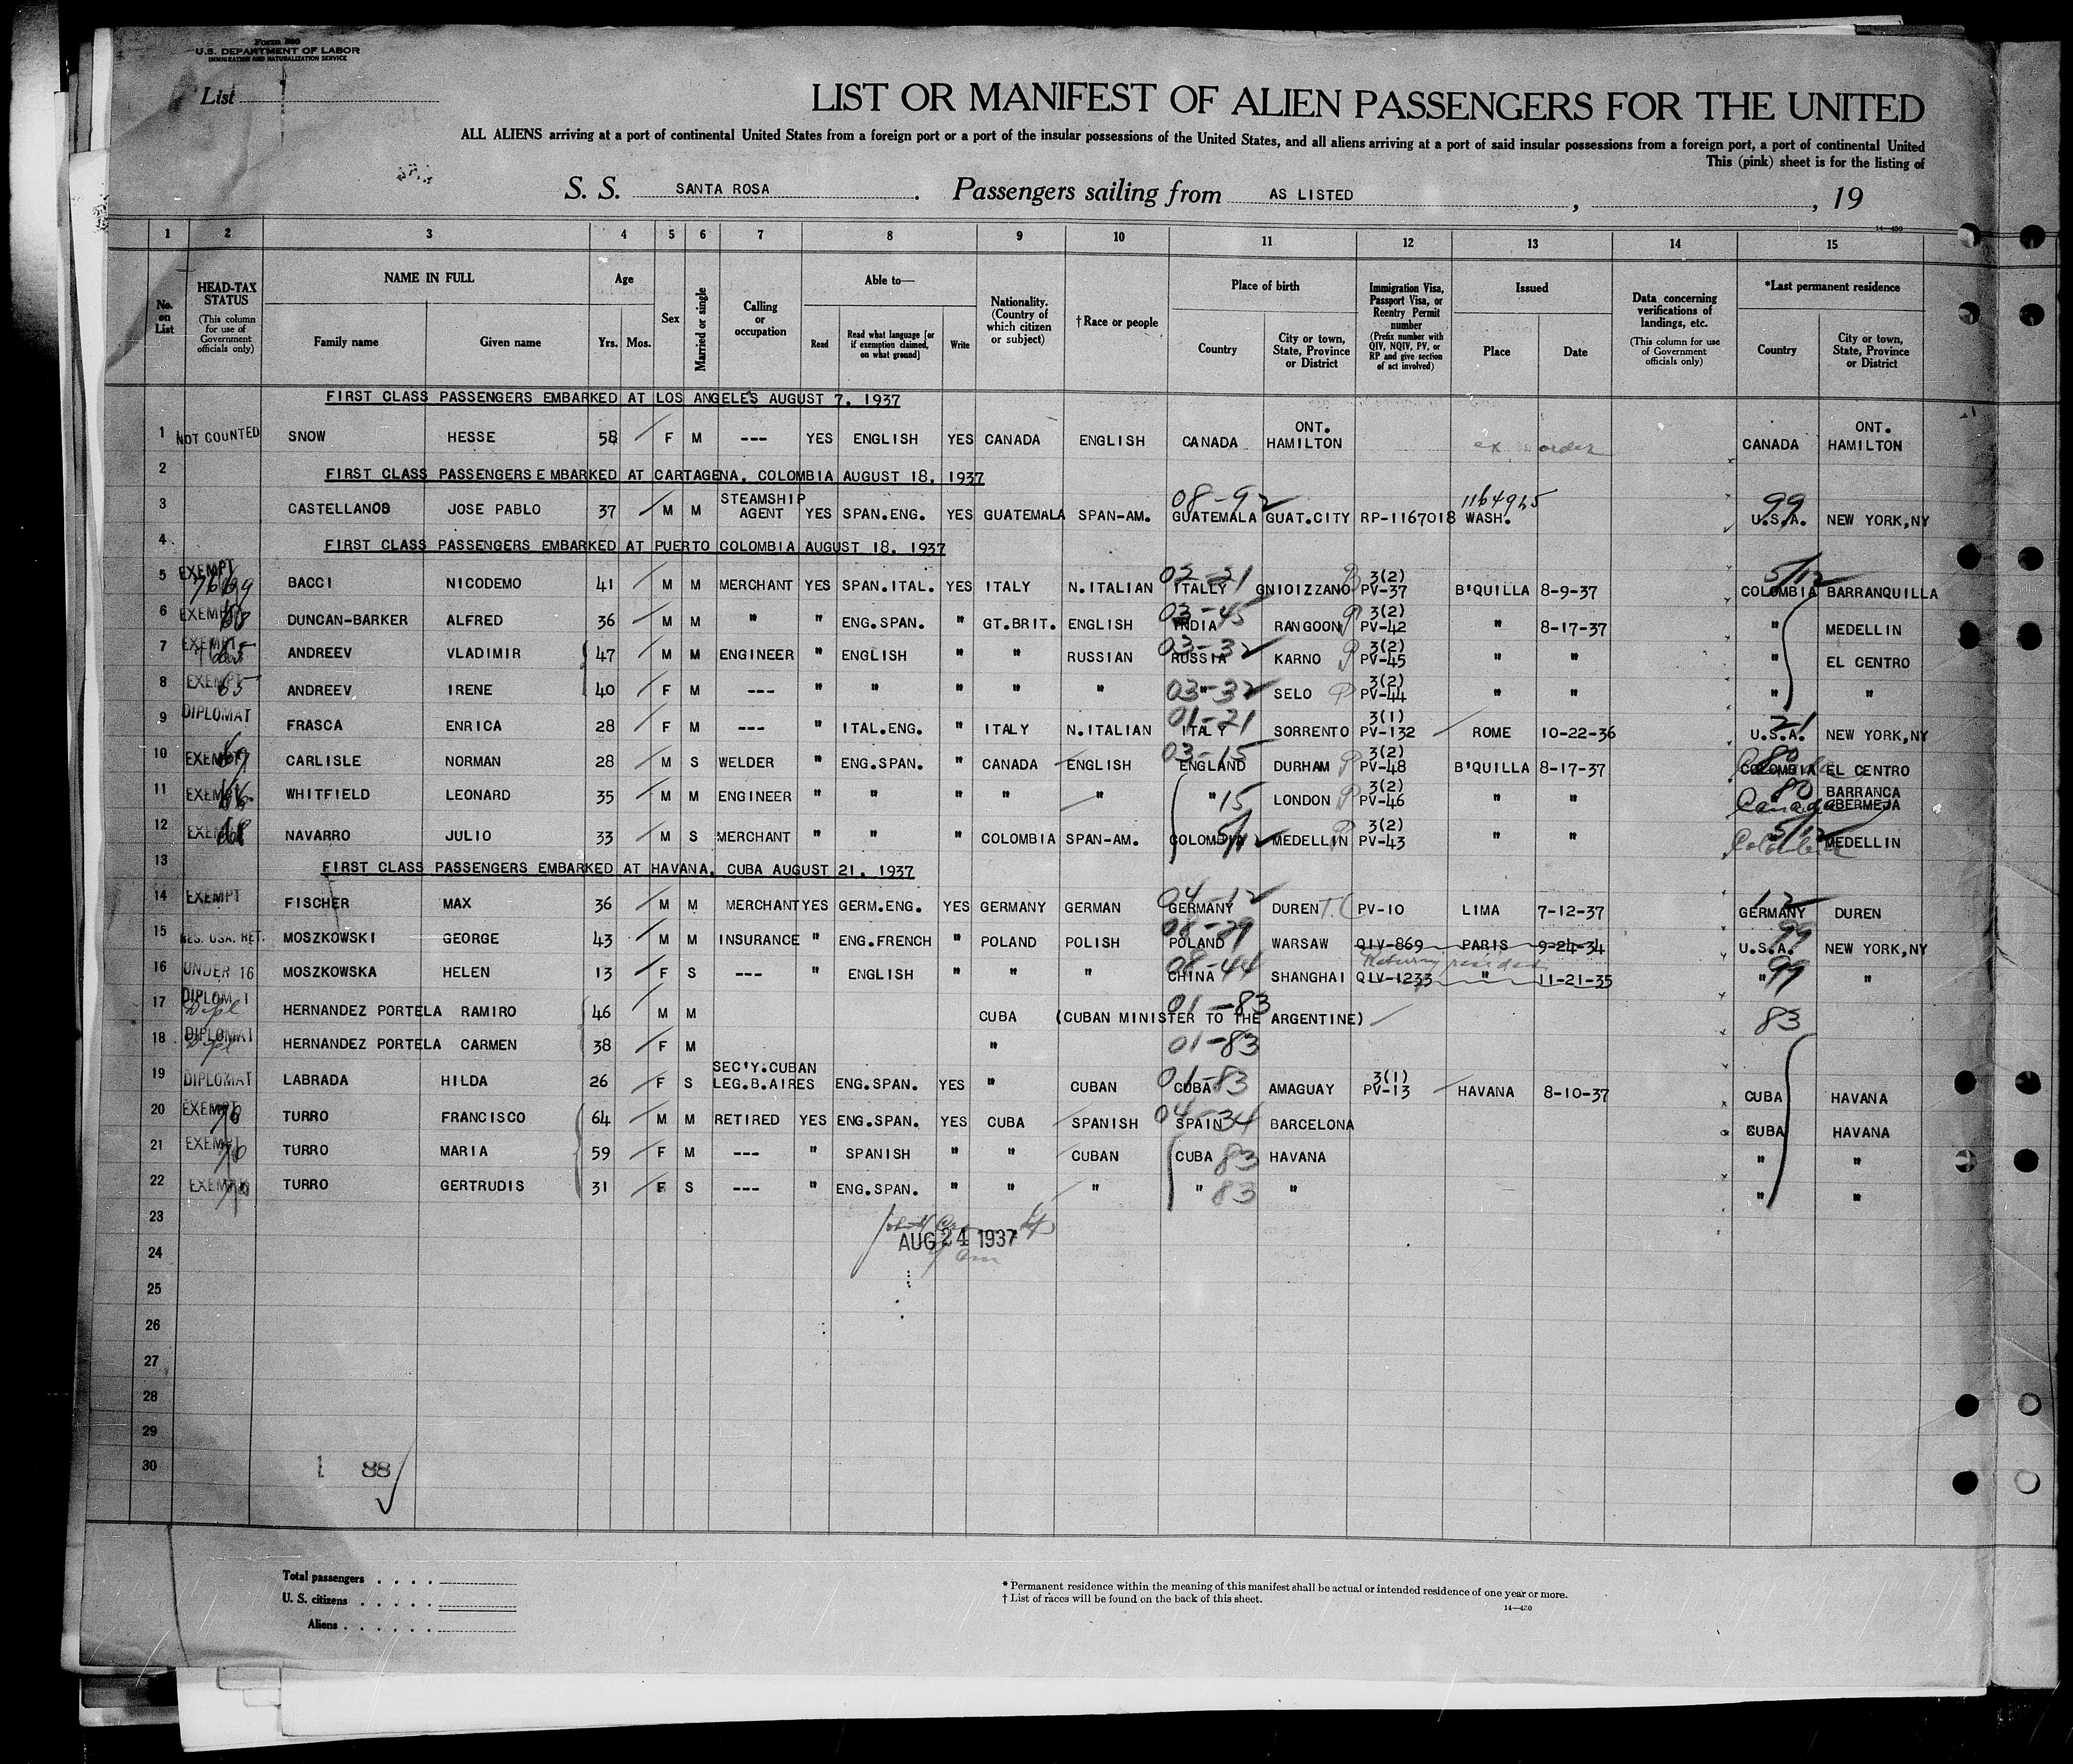 Form 500
U.S. DEPARTMENT OF LABOR
IMMIGRATION AND NATURALIZATION SERVICE
List
LIST OR MANIFEST OF ALIEN PASSENGERS FOR THE UNITED
ALL ALIENS arriving at a port of continental United States from a foreign port or a port of the insular possessions of the United States, and all aliens arriving at a port of said insular possessions from a foreign port, a port of continental United
This (pink) sheet is for the listing of
S. S. SANTA ROSA . Passengers sailing from AS LISTED , , 19
14—430
1 2 3 4 5 6 7 8 9 10 11 12 13 14 15
No. on List
HEAD-TAX STATUS (This column for use of Government officials only)
NAME IN FULL
Family name Given name
Age
Yrs. Mos.
Sex
Married or single
Calling or occupation
Able to—
Read
Read what language [or if exemption claimed, on what ground]
Write
Nationality. (Country of which citizen or subject)
†Race or people
Place of birth
Country
City or town, State, Province or District
Immigration Visa, Passport Visa, or Reentry Permit number (Prefix number with QIV, NQIV, PV, or RP and give section of act involved)
Issued
Place Date
Data concerning verifications of landings, etc. (This column for use of Government officials only)
*Last permanent residence
Country
City or town, State, Province or District
FIRST CLASS PASSENGERS EMBARKED AT LOS ANGELES AUGUST 7. 1937
1 NOT COUNTED SNOW HESSE 58 F M --- YES ENGLISH YES CANADA ENGLISH CANADA ONT. HAMILTON CANADA ONT. HAMILTON
2 FIRST CLASS PASSENGERS EMBARKED AT CARTAGENA, COLOMBIA AUGUST 18. 1937
3 CASTELLANOS JOSE PABLO 37 M M STEAMSHIP AGENT YES SPAN.ENG. YES GUATEMALA SPAN-AM. 08-92 GUATEMALA GUAT.CITY RP-1167018 WASH. 1164965 99 U.S.A. NEW YORK,NY
4 FIRST CLASS PASSENGERS EMBARKED AT PUERTO COLOMBIA AUGUST 18. 1937
5 EXEMPT BACCI NICODEMO 41 M M MERCHANT YES SPAN.ITAL. YES ITALY N.ITALIAN 02-21 ITALLY GNIOIZZANO 3(2) PV-37 B'QUILLA 8-9-37 5/12 COLOMBIA BARRANQUILLA
6 EXEMPT DUNCAN-BARKER ALFRED 36 M M " " ENG.SPAN. " GT.BRIT. ENGLISH 03-45 INDIA RANGOON 3(2) PV-42 " 8-17-37 " MEDELLIN
7 EXEMPT ANDREEV VLADIMIR 47 M M ENGINEER " ENGLISH " " RUSSIAN 03-32 RUSSIA KARNO 3(2) PV-45 " " " EL CENTRO
8 EXEMPT 65 ANDREEV IRENE 40 F M --- " " " " " 03-32 " SELO 3(2) PV-44 " " " "
9 DIPLOMAT FRASCA ENRICA 28 F M --- " ITAL.ENG. " ITALY N.ITALIAN 01-21 ITALY SORRENTO 3(1) PV-132 ROME 10-22-36 21 U.S.A. NEW YORK,NY
10 EXEMPT CARLISLE NORMAN 28 M S WELDER " ENG.SPAN. " CANADA ENGLISH 03-15 ENGLAND DURHAM 3(2) PV-48 B'QUILLA 8-17-37 80 COLOMBIA EL CENTRO
11 EXEMPT WHITFIELD LEONARD 35 M M ENGINEER " " " " " " 15 LONDON 3(2) PV-46 " " 80 Canada BARRANCA BERMEJA
12 EXEMPT 68 NAVARRO JULIO 33 M S MERCHANT " " " COLOMBIA SPAN-AM. COLOMBIA MEDELLIN 3(2) PV-43 " " 5/12 Colombia MEDELLIN
13 FIRST CLASS PASSENGERS EMBARKED AT HAVANA, CUBA AUGUST 21. 1937
14 EXEMPT FISCHER MAX 36 M M MERCHANT YES GERM.ENG. YES GERMANY GERMAN 04-12 GERMANY DUREN PV-10 LIMA 7-12-37 12 GERMANY DUREN
15 RES. USA. RET. MOSZKOWSKI GEORGE 43 M M INSURANCE " ENG.FRENCH " POLAND POLISH 08-29 POLAND WARSAW QIV-869 PARIS 9-24-34 99 U.S.A. NEW YORK,NY
Returning resident
16 UNDER 16 MOSZKOWSKA HELEN 13 F S --- " ENGLISH " " " 08-44 CHINA SHANGHAI QIV-1233 " 11-21-35 99 " "
17 DIPLOMAT Dipl HERNANDEZ PORTELA RAMIRO 46 M M CUBA (CUBAN MINISTER TO THE ARGENTINE) 01-83 83
18 DIPLOMAT Dipl HERNANDEZ PORTELA CARMEN 38 F M " 01-83
19 DIPLOMAT LABRADA HILDA 26 F S SEC'Y.CUBAN LEG.B.AIRES ENG.SPAN. YES " CUBAN 01-83 CUBA AMAGUAY 3(1) PV-13 HAVANA 8-10-37 CUBA HAVANA
20 EXEMPT 76 TURRO FRANCISCO 64 M M RETIRED YES ENG.SPAN. YES CUBA SPANISH 04-34 SPAIN BARCELONA CUBA HAVANA
21 EXEMPT 76 TURRO MARIA 59 F M --- " SPANISH " " CUBAN CUBA 83 HAVANA " "
22 EXEMPT TURRO GERTRUDIS 31 F S --- " ENG.SPAN. " " " " 83 " " "
23
24 AUG 24 1937
25
26
27
28
29
30
88
Total passengers . . . .
U. S. citizens . . . . .
Aliens . . . . . .
* Permanent residence within the meaning of this manifest shall be actual or intended residence of one year or more.
† List of races will be found on the back of this sheet.
14—430